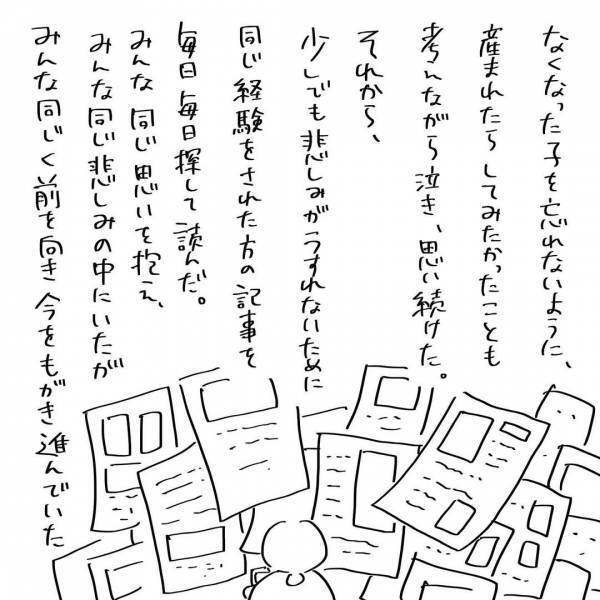 なくなった子を忘れないように、
産まれたらしてみたかったことも
考えながら泣き、思い続けた。
それから、
少しでも悲しみがうすれないために
同じ経験をされた方の記事を
毎日毎日探して読んだ。
みんな同じ思いを抱え、
みんな同じ悲しみの中にいたが
みんな同じく前を向き今をもがき進んでいた